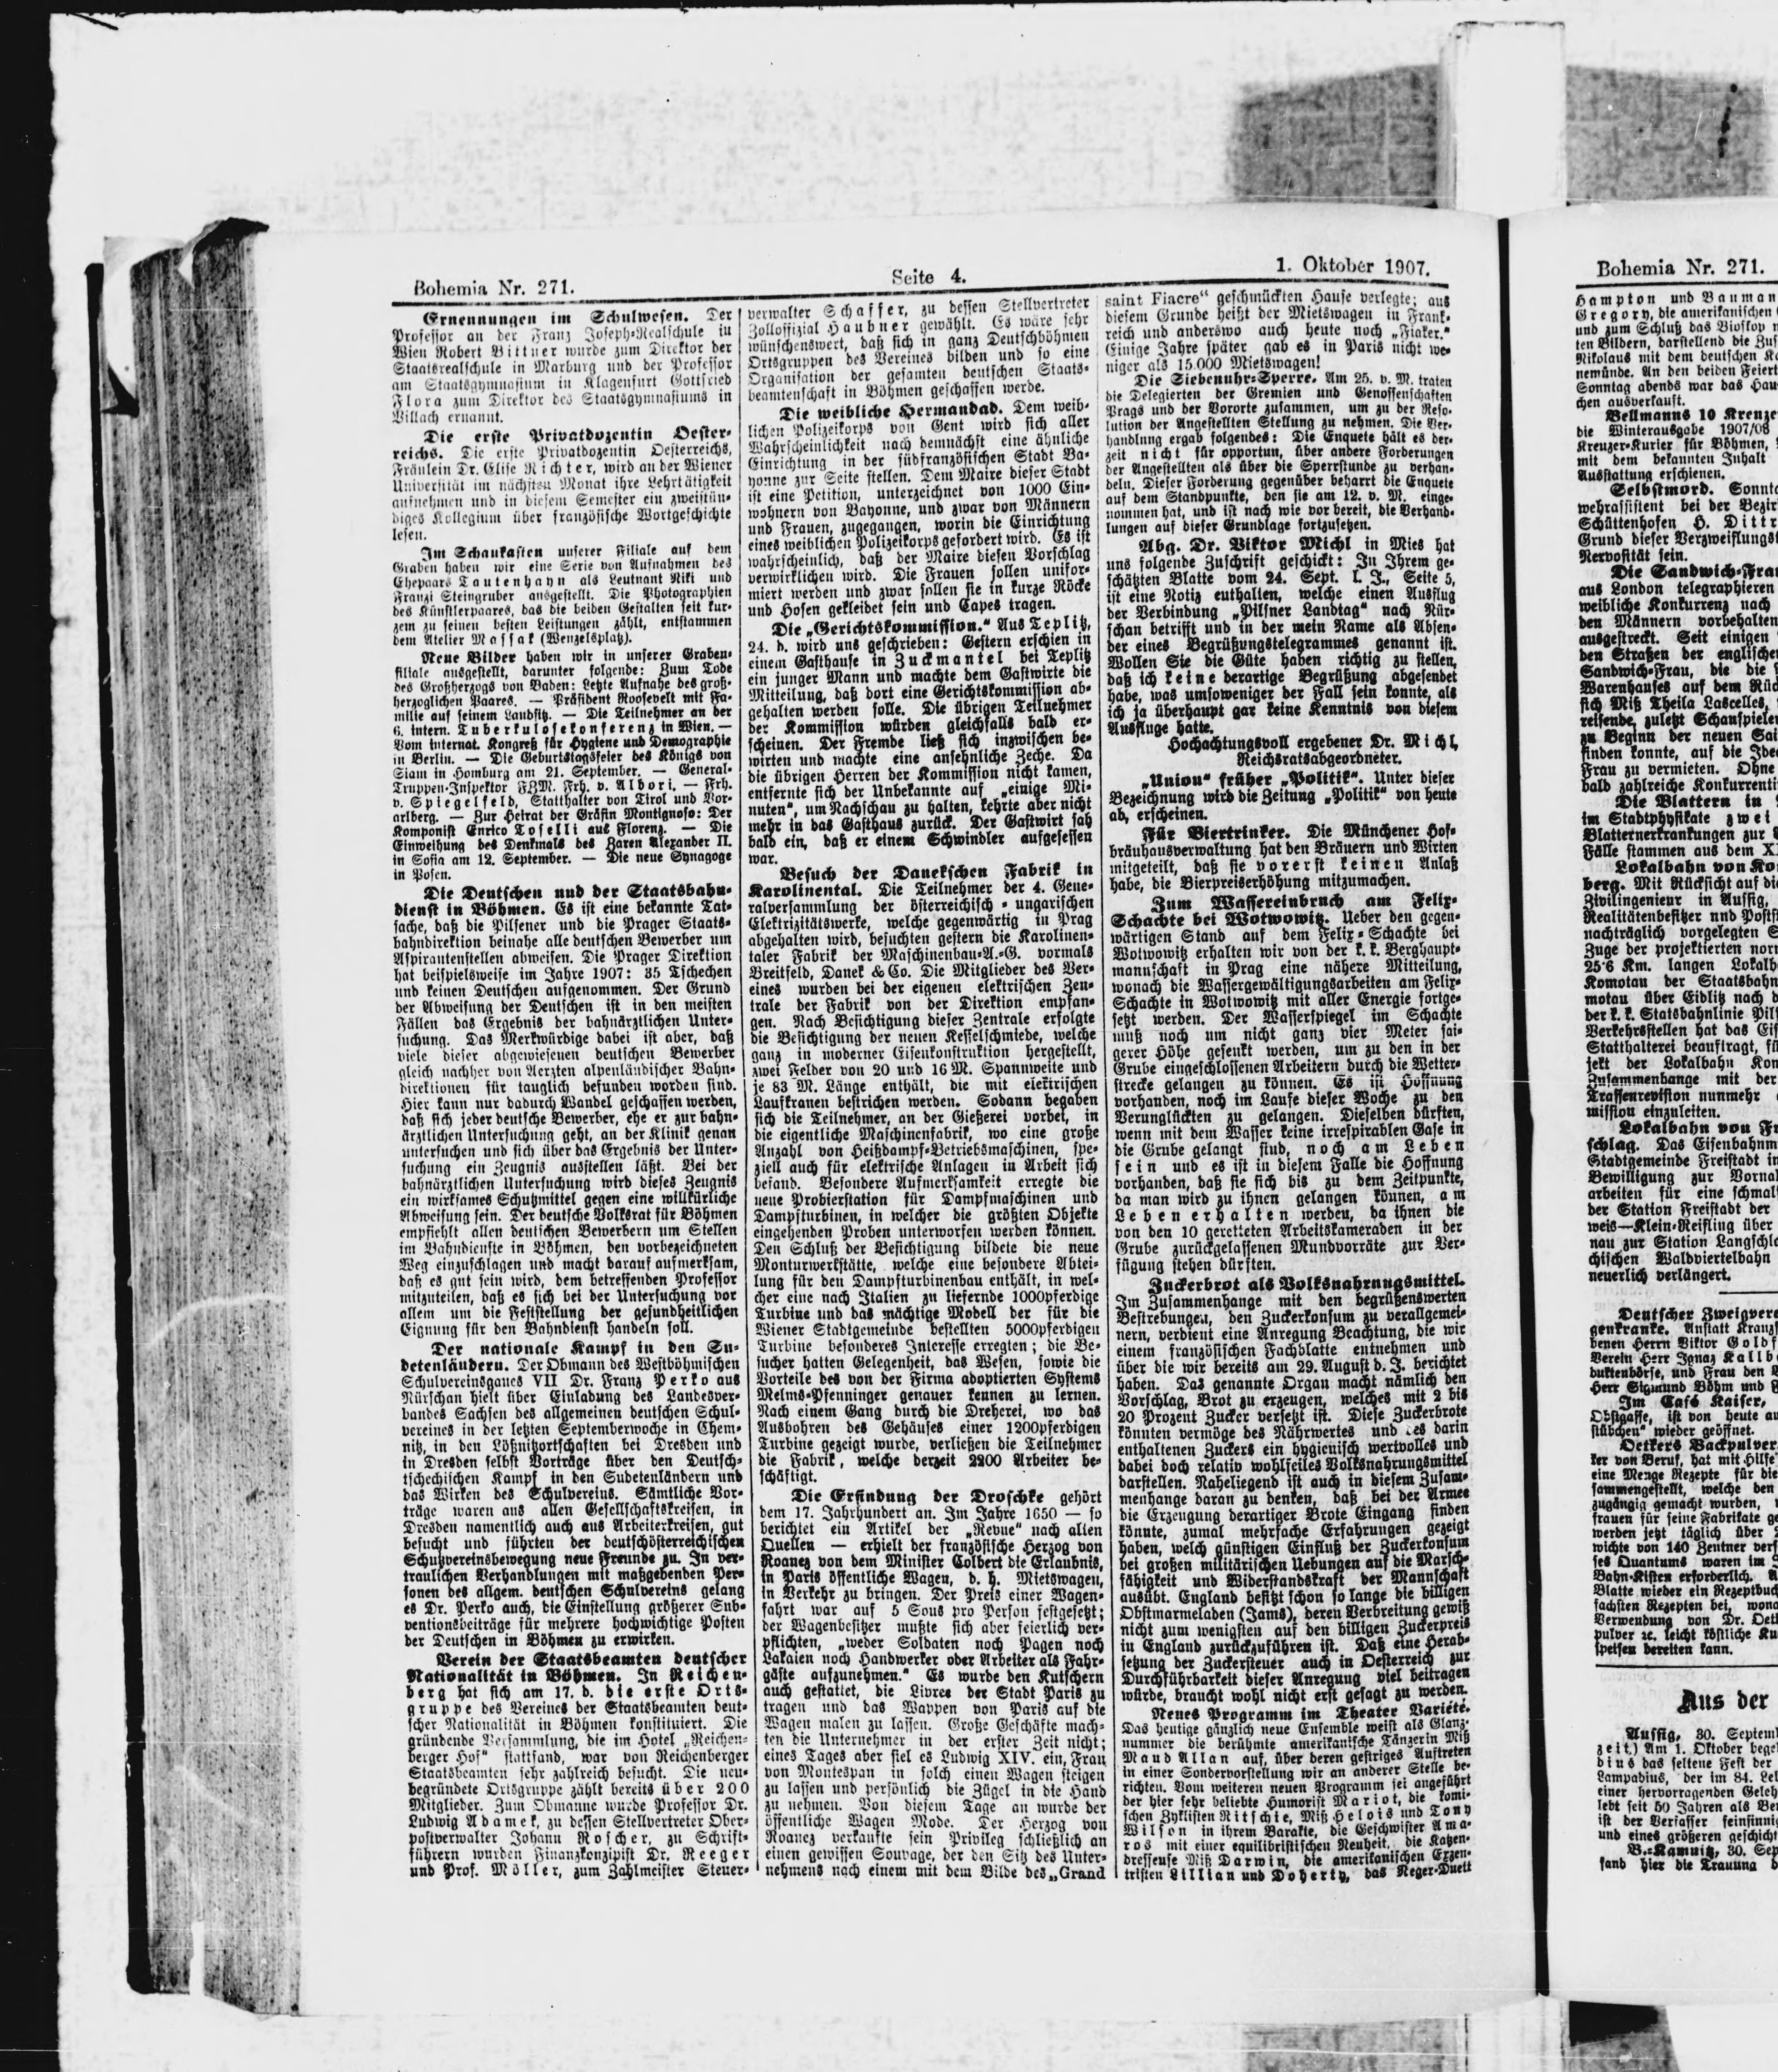 Bohemia Nr. 271.
Seite 4.
1. Oktober 1907.
Ernennungen im Schulwesen. Der
Professor an der Franz Joseph-Realschule in
Wien Robert Bittner wurde zum Direktor der
Staatsrealschule in Marburg und der Professor
am Staatsgymnasium in Klagenfurt Gottfried
Flora zum Direktor des Staatsgymnasiums in
Villach ernannt.
Die erste Privatdozentin Oester-
reichs. Die erste Privatdozentin Oesterreichs,
Fräulein Dr. Elise Richter, wird an der Wiener
Universität im nächsten Monat ihre Lehrtätigkeit
aufnehmen und in diesem Semester ein zweistün-
diges Kollegium über französische Wortgeschichte
lesen.
Im Schaukasten unserer Filiale auf dem
Graben haben wir eine Serie von Aufnahmen des
Ehepaars Tautenhayn als Leutnant Niki und
Franzi Steingruber ausgestellt. Die Photographien
des Künstlerpaares, das die beiden Gestalten seit kur-
zem zu seinen besten Leistungen zählt, entstammen
dem Atelier Massak (Wenzelsplatz).
Neue Bilder haben wir in unserer Graben-
filiale ausgestellt, darunter folgende: Zum Tode
des Großherzogs von Baden: Letzte Aufnahe des groß-
herzoglichen Paares. — Präsident Roosevelt mit Fa-
milie auf seinem Landsitz. — Die Teilnehmer an der
6. intern. Tuberkulosekonferenz in Wien. —
Vom internat. Kongreß für Hygiene und Demographie
in Berlin. — Die Geburtstagsfeier des Königs von
Siam in Homburg am 21. September. — General-
Truppen-Inspektor FZM. Frh. v. Albori. — Frh.
v. Spiegelfeld, Statthalter von Tirol und Vor-
arlberg. — Zur Heirat der Gräfin Montignoso: Der
Komponist Enrico Toselli aus Florenz. — Die
Einweihung des Denkmals des Zaren Alexander II.
in Sofia am 12. September. — Die neue Synagoge
in Posen.
Die Deutschen und der Staatsbahn-
dienst in Böhmen. Es ist eine bekannte Tat-
sache, daß die Pilsener und die Prager Staats-
bahndirektion beinahe alle deutschen Bewerber um
Aspirantenstellen abweisen. Die Prager Direktion
hat beispielsweise im Jahre 1907: 35 Tschechen
und keinen Deutschen aufgenommen. Der Grund
der Abweisung der Deutschen ist in den meisten
Fällen das Ergebnis der bahnärztlichen Unter-
suchung. Das Merkwürdige dabei ist aber, daß
viele dieser abgewiesenen deutschen Bewerber
gleich nachher von Aerzten alpenländischer Bahn-
direktionen für tauglich befunden worden sind.
Hier kann nur dadurch Wandel geschaffen werden,
daß sich jeder deutsche Bewerber, ehe er zur bahn-
ärztlichen Untersuchung geht, an der Klinik genau
untersuchen und sich über das Ergebnis der Unter-
suchung ein Zeugnis ausstellen läßt. Bei der
bahnärztlichen Untersuchung wird dieses Zeugnis
ein wirksames Schutzmittel gegen eine willkürliche
Abweisung sein. Der deutsche Volksrat für Böhmen
empfiehlt allen deutschen Bewerbern um Stellen
im Bahndienste in Böhmen, den vorbezeichneten
Weg einzuschlagen und macht darauf aufmerksam,
daß es gut sein wird, dem betreffenden Professor
mitzuteilen, daß es sich bei der Untersuchung vor
allem um die Feststellung der gesundheitlichen
Eignung für den Bahndienst handeln soll.
Der nationale Kampf in den Su-
detenländern. Der Obmann des Westböhmischen
Schulvereinsgaues VII Dr. Franz Perko aus
Nürschan hielt über Einladung des Landesver-
bandes Sachsen des allgemeinen deutschen Schul-
vereines in der letzten Septemberwoche in Chem-
nitz, in den Lößnitzortschaften bei Dresden und
in Dresden selbst Vorträge über den Deutsch-
tschechischen Kampf in den Sudetenländern und
das Wirken des Schulvereins. Sämtliche Vor-
träge waren aus allen Gesellschaftskreisen, in
Dresden namentlich auch aus Arbeiterkreisen, gut
besucht und führten der deutschösterreichischen
Schutzvereinsbewegung neue Freunde zu. In ver-
traulichen Verhandlungen mit maßgebenden Per-
sonen des allgem. deutschen Schulvereins gelang
es Dr. Perko auch, die Einstellung größerer Sub-
ventionsbeiträge für mehrere hochwichtige Posten
der Deutschen in Böhmen zu erwirken.
Verein der Staatsbeamten deutscher
Nationalität in Böhmen. In Reichen-
berg hat sich am 17. d. die erste Orts-
gruppe des Vereines der Staatsbeamten deut-
scher Nationalität in Böhmen konstituiert. Die
gründende Versammlung, die im Hotel „Reichen-
berger Hof“ stattfand, war von Reichenberger
Staatsbeamten sehr zahlreich besucht. Die neu-
begründete Ortsgruppe zählt bereits über 200
Mitglieder. Zum Obmanne wurde Professor Dr.
Ludwig Adamek, zu dessen Stellvertreter Ober-
postverwalter Johann Roscher, zu Schrift-
führern wurden Finanzkonzipist Dr. Reeger
und Prof. Möller, zum Zahlmeister Steuer-
verwalter Schaffer, zu dessen Stellvertreter
Zolloffizial Haubner gewählt. Es wäre sehr
wünschenswert, daß sich in ganz Deutschböhmen
Ortsgruppen des Vereines bilden und so eine
Organisation der gesamten deutschen Staats-
beamtenschaft in Böhmen geschaffen werde.
Die weibliche Hermandad. Dem weib-
lichen Polizeikorps von Gent wird sich aller
Wahrscheinlichkeit nach demnächst eine ähnliche
Einrichtung in der südfranzösischen Stadt Ba-
yonne zur Seite stellen. Dem Maire dieser Stadt
ist eine Petition, unterzeichnet von 1000 Ein-
wohnern von Bayonne, und zwar von Männern
und Frauen, zugegangen, worin die Einrichtung
eines weiblichen Polizeikorps gefordert wird. Es ist
wahrscheinlich, daß der Maire diesen Vorschlag
verwirklichen wird. Die Frauen sollen unifor-
miert werden und zwar sollen sie in kurze Röcke
und Hosen gekleidet sein und Capes tragen.
Die „Gerichtskommission.“ Aus Teplitz,
24. d. wird uns geschrieben: Gestern erschien in
einem Gasthause in Zuckmantel bei Teplitz
ein junger Mann und machte dem Gastwirte die
Mitteilung, daß dort eine Gerichtskommission ab-
gehalten werden solle. Die übrigen Teilnehmer
der Kommission würden gleichfalls bald er-
scheinen. Der Fremde ließ sich inzwischen be-
wirten und machte eine ansehnliche Zeche. Da
die übrigen Herren der Kommission nicht kamen,
entfernte sich der Unbekannte auf „einige Mi-
nuten“, um Nachschau zu halten, kehrte aber nicht
mehr in das Gasthaus zurück. Der Gastwirt sah
bald ein, daß er einem Schwindler aufgesessen
war.
Besuch der Danekschen Fabrik in
Karolinental. Die Teilnehmer der 4. Gene-
ralversammlung der österreichisch-ungarischen
Elektrizitätswerke, welche gegenwärtig in Prag
abgehalten wird, besuchten gestern die Karolinen-
taler Fabrik der Maschinenbau-A.-G. vormals
Breitfeld, Danek & Co. Die Mitglieder des Ver-
eines wurden bei der eigenen elektrischen Zen-
trale der Fabrik von der Direktion empfan-
gen. Nach Besichtigung dieser Zentrale erfolgte
die Besichtigung der neuen Kesselschmiede, welche
ganz in moderner Eisenkonstruktion hergestellt,
zwei Felder von 20 und 16 M. Spannweite und
je 83 M. Länge enthält, die mit elektrischen
Laufkranen bestrichen werden. Sodann begaben
sich die Teilnehmer, an der Gießerei vorbei, in
die eigentliche Maschinenfabrik, wo eine große
Anzahl von Heißdampf-Betriebsmaschinen, spe-
ziell auch für elektrische Anlagen in Arbeit sich
befand. Besondere Aufmerksamkeit erregte die
neue Probierstation für Dampfmaschinen und
Dampfturbinen, in welcher die größten Objekte
eingehenden Proben unterworfen werden können.
Den Schluß der Besichtigung bildete die neue
Monturwerkstätte, welche eine besondere Abtei-
lung für den Dampfturbinenbau enthält, in wel-
cher eine nach Italien zu liefernde 1000pferdige
Turbine und das mächtige Modell der für die
Wiener Stadtgemeinde bestellten 5000pferdigen
Turbine besonderes Interesse erregten; die Be-
sucher hatten Gelegenheit, das Wesen, sowie die
Vorteile des von der Firma adoptierten Systems
Melms-Pfenninger genauer kennen zu lernen.
Nach einem Gang durch die Dreherei, wo das
Ausbohren des Gehäuses einer 1200pferdigen
Turbine gezeigt wurde, verließen die Teilnehmer
die Fabrik, welche derzeit 2200 Arbeiter be-
schäftigt.
Die Erfindung der Droschke gehört
dem 17. Jahrhundert an. Im Jahre 1650 — so
berichtet ein Artikel der „Revue“ nach alten
Quellen — erhielt der französische Herzog von
Roanez von dem Minister Colbert die Erlaubnis,
in Paris öffentliche Wagen, d. h. Mietswagen,
in Verkehr zu bringen. Der Preis einer Wagen-
fahrt war auf 5 Sous pro Person festgesetzt;
der Wagenbesitzer mußte sich aber feierlich ver-
pflichten, „weder Soldaten noch Pagen noch
Lakaien noch Handwerker oder Arbeiter als Fahr-
gäste aufzunehmen.“ Es wurde den Kutschern
auch gestattet, die Livree der Stadt Paris zu
tragen und das Wappen von Paris auf die
Wagen malen zu lassen. Große Geschäfte mach-
ten die Unternehmer in der erster Zeit nicht;
eines Tages aber fiel es Ludwig XIV. ein, Frau
von Montespan in solch einen Wagen steigen
zu lassen und persönlich die Zügel in die Hand
zu nehmen. Von diesem Tage an wurde der
öffentliche Wagen Mode. Der Herzog von
Roanez verkaufte sein Privileg schließlich an
einen gewissen Souvage, der den Sitz des Unter-
nehmens nach einem mit dem Bilde des „Grand
saint Fiacre“ geschmückten Hause verlegte; aus
diesem Grunde heißt der Mietswagen in Frank-
reich und anderswo auch heute noch „Fiaker.“
Einige Jahre später gab es in Paris nicht we-
niger als 15.000 Mietswagen!
Die Siebenuhr-Sperre. Am 25. v. M. traten
die Delegierten der Gremien und Genossenschaften
Prags und der Vororte zusammen, um zu der Reso-
lution der Angestellten Stellung zu nehmen. Die Ver-
handlung ergab folgendes: Die Enquete hält es der-
zeit nicht für opportun, über andere Forderungen
der Angestellten als über die Sperrstunde zu verhan-
deln. Dieser Forderung gegenüber beharrt die Enquete
auf dem Standpunkte, den sie am 12. v. M. einge-
nommen hat, und ist nach wie vor bereit, die Verhand-
lungen auf dieser Grundlage fortzusetzen.
Abg. Dr. Viktor Michl in Mies hat
uns folgende Zuschrift geschickt: In Ihrem ge-
schätzten Blatte vom 24. Sept. l. J., Seite 5,
ist eine Notiz enthalten, welche einen Ausflug
der Verbindung „Pilsner Landtag“ nach Nür-
schan betrifft und in der mein Name als Absen-
der eines Begrüßungstelegrammes genannt ist.
Wollen Sie die Güte haben richtig zu stellen,
daß ich keine derartige Begrüßung abgesendet
habe, was umsoweniger der Fall sein konnte, als
ich ja überhaupt gar keine Kenntnis von diesem
Ausfluge hatte.
Hochachtungsvoll ergebener Dr. Michl,
Reichsratsabgeordneter.
„Union“ früher „Politik“. Unter dieser
Bezeichnung wird die Zeitung „Politik“ von heute
ab, erscheinen.
Für Biertrinker. Die Münchener Hof-
bräuhausverwaltung hat den Bräuern und Wirten
mitgeteilt, daß sie vorerst keinen Anlaß
habe, die Bierpreiserhöhung mitzumachen.
Zum Wassereinbruch am Felix-
Schachte bei Wotwowitz. Ueber den gegen-
wärtigen Stand auf dem Felix-Schachte bei
Wotwowitz erhalten wir von der k. k. Berghaupt-
mannschaft in Prag eine nähere Mitteilung,
wonach die Wassergewältigungsarbeiten am Felix-
Schachte in Wotwowitz mit aller Energie fortge-
setzt werden. Der Wasserspiegel im Schachte
muß noch um nicht ganz vier Meter sai-
gerer Höhe gesenkt werden, um zu den in der
Grube eingeschlossenen Arbeitern durch die Wetter-
strecke gelangen zu können. Es ist Hoffnung
vorhanden, noch im Laufe dieser Woche zu den
Verunglückten zu gelangen. Dieselben dürften,
wenn mit dem Wasser keine irrespirablen Gase in
die Grube gelangt sind, noch am Leben
sein und es ist in diesem Falle die Hoffnung
vorhanden, daß sie sich bis zu dem Zeitpunkte,
da man wird zu ihnen gelangen können, am
Leben erhalten werden, da ihnen die
von den 10 geretteten Arbeitskameraden in der
Grube zurückgelassenen Mundvorräte zur Ver-
fügung stehen dürften.
Zuckerbrot als Volksnahrungsmittel.
Im Zusammenhange mit den begrüßenswerten
Bestrebungen, den Zuckerkonsum zu verallgemei-
nern, verdient eine Anregung Beachtung, die wir
einem französischen Fachblatte entnehmen und
über die wir bereits am 29. August d. J. berichtet
haben. Das genannte Organ macht nämlich den
Vorschlag, Brot zu erzeugen, welches mit 2 bis
20 Prozent Zucker versetzt ist. Diese Zuckerbrote
könnten vermöge des Nährwertes und des darin
enthaltenen Zuckers ein hygienisch wertvolles und
dabei doch relativ wohlfeiles Volksnahrungsmittel
darstellen. Naheliegend ist auch in diesem Zusam-
menhange daran zu denken, daß bei der Armee
die Erzeugung derartiger Brote Eingang finden
könnte, zumal mehrfache Erfahrungen gezeigt
haben, welch günstigen Einfluß der Zuckerkonsum
bei großen militärischen Uebungen auf die Marsch-
fähigkeit und Widerstandskraft der Mannschaft
ausübt. England besitzt schon so lange die billigen
Obstmarmeladen (Jams), deren Verbreitung gewiß
nicht zum wenigsten auf den billigen Zuckerpreis
in England zurückzuführen ist. Daß eine Herab-
setzung der Zuckersteuer auch in Oesterreich zur
Durchführbarkeit dieser Anregung viel beitragen
würde, braucht wohl nicht erst gesagt zu werden.
Neues Programm im Theater Variété.
Das heutige gänzlich neue Ensemble weist als Glanz-
nummer die berühmte amerikanische Tänzerin Miß
Maud Allan auf, über deren gestriges Auftreten
in einer Sondervorstellung wir an anderer Stelle be-
richten. Vom weiteren neuen Programm sei angeführt
der hier sehr beliebte Humorist Mariot, die komi-
schen Zyklisten Ritschie, Miß Helois und Tony
Wilson in ihrem Barakte, die Geschwister Ama-
ros mit einer equilibristischen Neuheit, die Katzen-
dresseuse Miß Darwin, die amerikanischen Exzen-
tristen Lillian und Doherty, das Neger-Duett
Bohemia Nr. 271.
Hampton und Bauman
Gregory, die amerikanischen
und zum Schluß das Bioskop
ten Bildern, darstellend die Zus
Nikolaus mit dem deutschen Ka
nemünde. An den beiden Feiert
Sonntag abends war das Hau
chen ausverkauft.
Bellmanns 10 Kreuze
die Winterausgabe 1907/08
Kreuzer-Kurier für Böhmen,
mit dem bekannten Inhalt
Ausstattung erschienen.
Selbstmord. Sonnta
wehrassistent bei der Bezir
Schüttenhofen H. Dittr
Grund dieser Verzweiflungst
Nervosität sein.
Die Sandwich-Frau
aus London telegraphieren
weibliche Konkurrenz nach
den Männern vorbehalten
ausgestreckt. Seit einigen
den Straßen der englischen
Sandwich-Frau, die die
Warenhauses auf dem Rück
sich Miß Theila Lascelles,
reisende, zuletzt Schauspieler
zu Beginn der neuen Sai
finden konnte, auf die Idee
Frau zu vermieten. Ohne
bald zahlreiche Konkurrenti
Die Blattern in
im Stadtphysikate zwei
Blatternerkrankungen zur
Fälle stammen aus dem XI
Lokalbahn von Ko
berg. Mit Rücksicht auf die
Zivilingenieur in Aussig,
Realitätenbesitzer und Posts
nachträglich vorgelegten
Zuge der projektierten norm
25·6 Km. langen Lokalb
Komotau der Staatsbahn
motau über Eidlitz nach
der k. k. Statsbahnlinie Pils
Verkehrsstellen hat das Eis
Statthalterei beauftragt, fü
jekt der Lokalbahn Kom
Zusammenhange mit der
Trassenrevision nunmehr
mission einzuleiten.
Lokalbahn von Fr
schlag. Das Eisenbahnm
Stadtgemeinde Freistadt in
Bewilligung zur Vornah
arbeiten für eine schmal
der Station Freistadt der
weis—Klein-Reifling über
nau zur Station Langschla
chischen Waldviertelbahn
neuerlich verlängert.
Deutscher Zweigvere
genkranke. Anstatt Kranzs
benen Herrn Viktor Goldf
Verein Herr Ignaz Kallb
duktenbörse, und Frau den
Herr Sigmund Böhm und
Im Café Kaiser,
Obstgasse, ist von heute au
stübchen“ wieder geöffnet.
Oetkers Backpulver.
ker von Beruf, hat mit Hilfe
eine Menge Rezepte für die
sammengestellt, welche den
zugängig gemacht wurden,
frauen für seine Fabrikate ge
werden jetzt täglich über
wichte von 140 Zentner vers
ses Quantums waren im
Bahn-Kisten erforderlich.
Blatte wieder ein Rezeptbuch
fachsten Rezepten bei, wona
Verwendung von Dr. Oetk
pulver ꝛc. leicht köstliche Ku
speisen bereiten kann.
Aus der
Aussig, 30. Septemb
zeit.) Am 1. Oktober bege
dius das seltene Fest der
Lampadius, der im 84. Leb
einer hervorragenden Geleh
lebt seit 50 Jahren als Ber
ist der Verfasser feinsinnig
und eines größeren geschicht
B.-Kamnitz, 30. Sep
fand hier die Trauung d